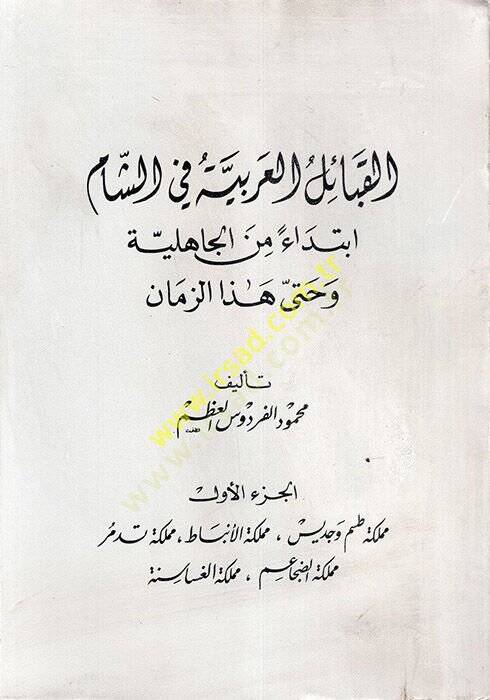 القبائل العربية في الشام
ابتداءً من الجاهلية
وحتى هذا الزمان
تأليف
محمود الفردوس العظم
الجزء الأول
مملكة طسم وجديس، مملكة الأنباط، مملكة تدمر
مملكة الضجاعم، مملكة الغساسنة
www.irsad.com.tr